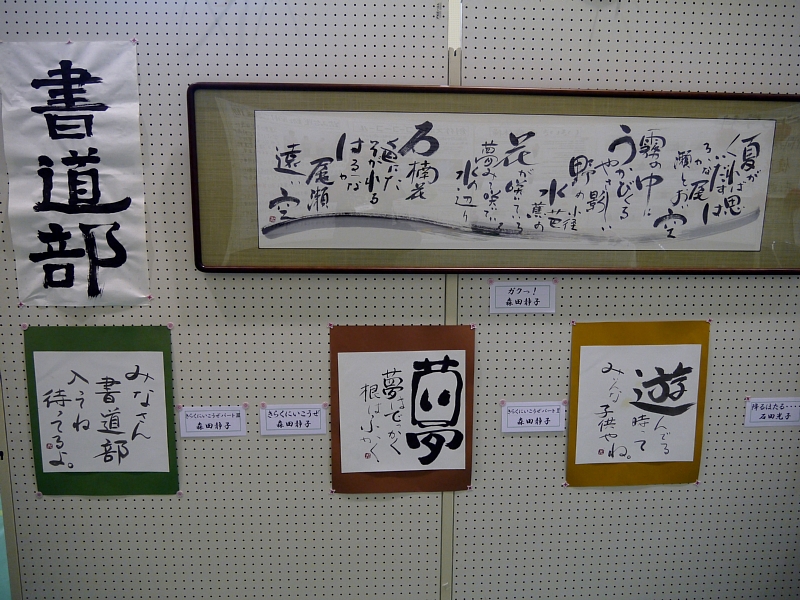 書道部
夏がくれば思
いだす は
るかな尾
瀬とお 空
霧の中に
うかびくる
やさ影い
野の小径
水芭蕉の
花が咲いている
夢みて咲いている
水の辺り
石楠花
色に
たそがれる
はるかな
尾瀬
遠い空
ガクっ!
森田静子
みなさん
書道部
入ってね
待てるよ。
きらくにいこうぜパートⅢ
森田静子
きらくにいこうぜ
森田静子
夢
夢はでかく
根はふかく
きらくにいこうぜパートⅡ
森田静子
遊んでる
時って
みんな
子供やね。
降るはたる・・・・
石田光子